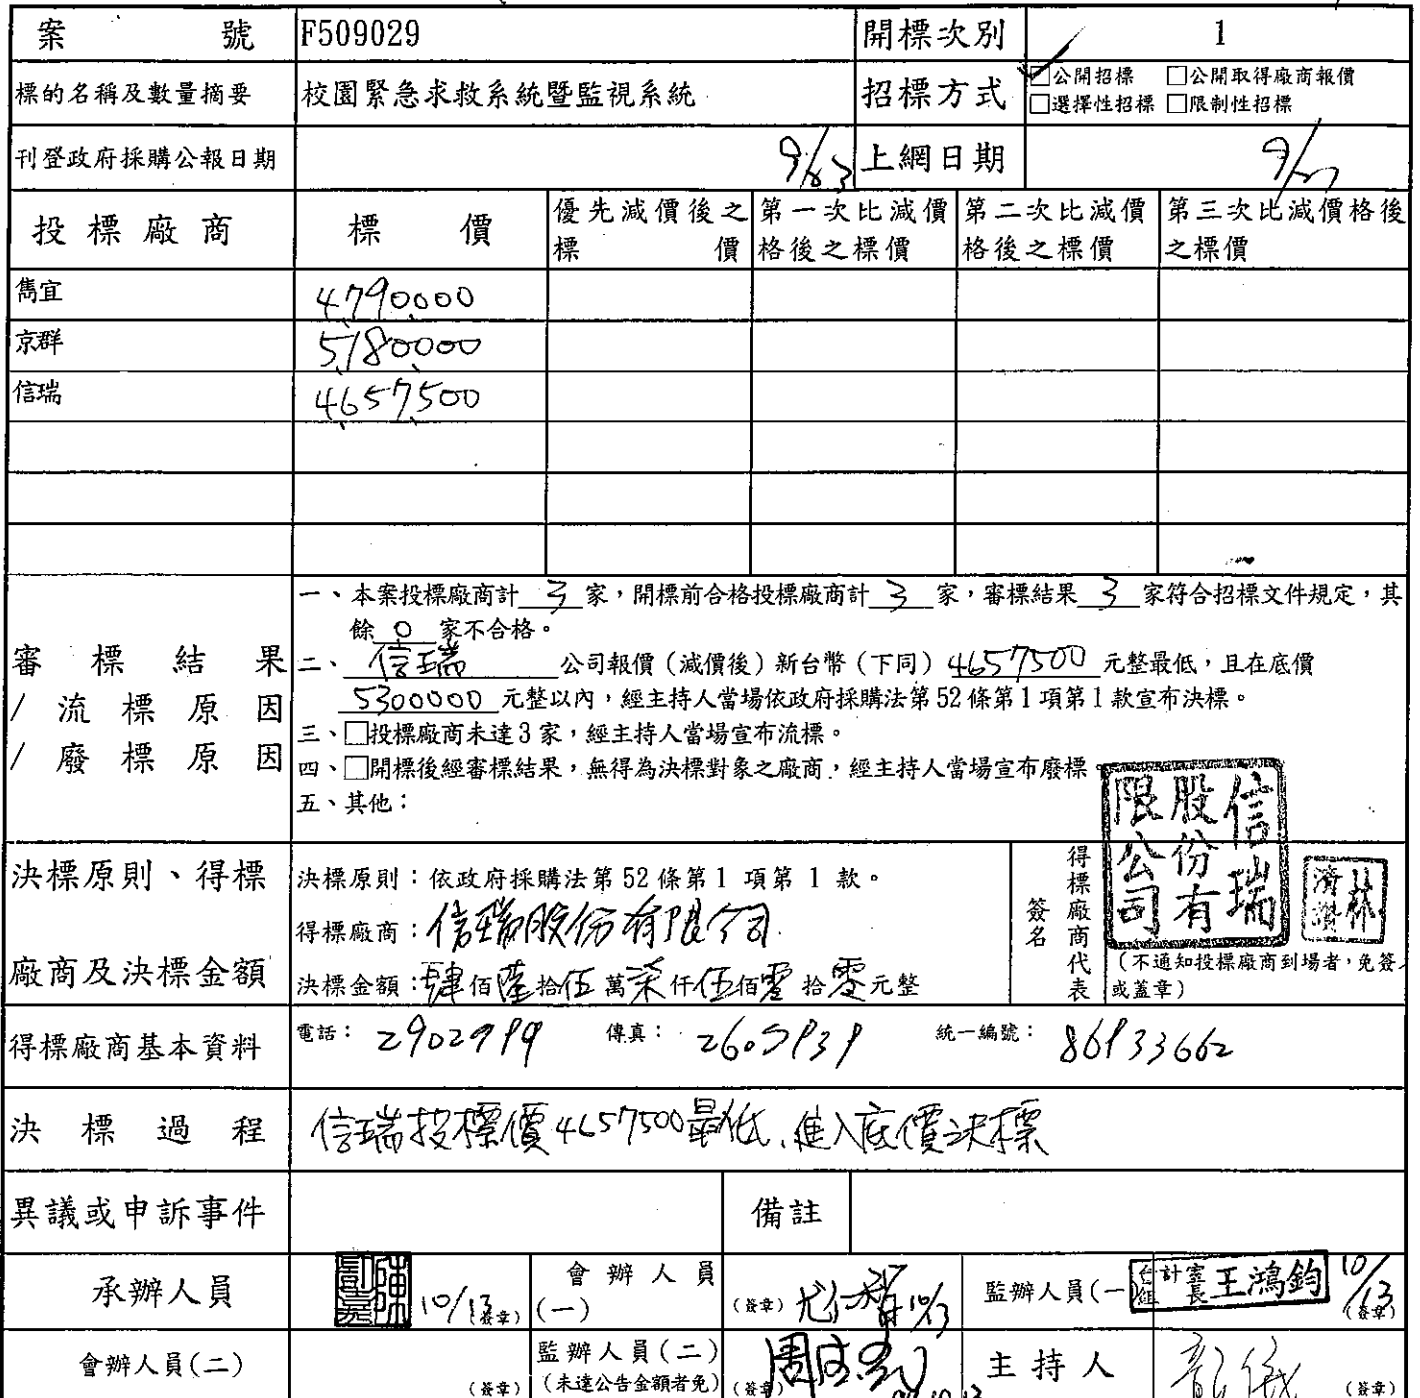 案號 F509029 開標次別 1
標的名稱及數量摘要 校園緊急求救系統暨監視系統 招標方式 ☑公開招標 □公開取得廠商報價
□選擇性招標 □限制性招標
刊登政府採購公報日期 9/23 上網日期
投標廠商 標價 優先減價後之標價 第一次比減價格後之標價 第二次比減價格後之標價 第三次比減價格後之標價
雋宜 4,790,000
京群 5,180,000
信瑞 4,657,500
審標結果
/流標原因
/廢標原因
一、本案投標廠商計 3 家,開標前合格投標廠商計 3 家,審標結果 3 家符合招標文件規定,其
餘 0 家不合格。
二、信瑞 公司報價(減價後)新台幣(下同)4657500 元整最低,且在底價
5300000 元整以內,經主持人當場依政府採購法第52條第1項第1款宣布決標。
三、□投標廠商未達3家,經主持人當場宣布流標。
四、□開標後經審標結果,無得為決標對象之廠商,經主持人當場宣布廢標。
五、其他:
決標原則、得標
廠商及決標金額
決標原則:依政府採購法第52條第1 項第 1 款。
得標廠商:信瑞股份有限公司
決標金額:肆佰陸拾伍萬柒仟伍佰零拾零元整
得標廠商代表
簽名
信瑞股份有限公司
(不通知投標廠商到場者,免簽
或蓋章)
得標廠商基本資料 電話: 2902999 傳真: 統一編號:
決標過程 信瑞投標價4657500最低,進入底價決標
異議或申訴事件 備註
承辦人員 10/13 (簽章) 會辦人員(一) (簽章) 10/13 監辦人員(一) 計室長 王鴻鈞 10/13 (簽章)
會辦人員(二) (簽章) 監辦人員(二) (未達公告金額者免) (簽章) 主持人 (簽章)